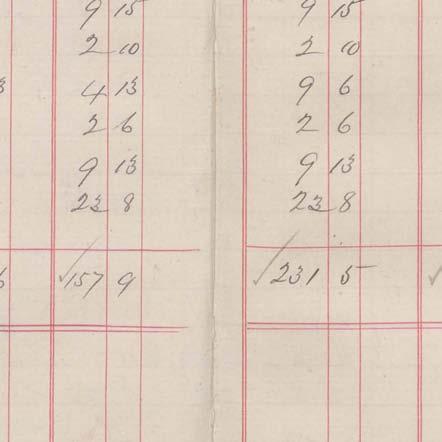 9 15 9 15
2 10 2 10
4 13 9 6
2 6 2 6
9 13 9 13
23 8 23 8
✓157 9 ✓231 5